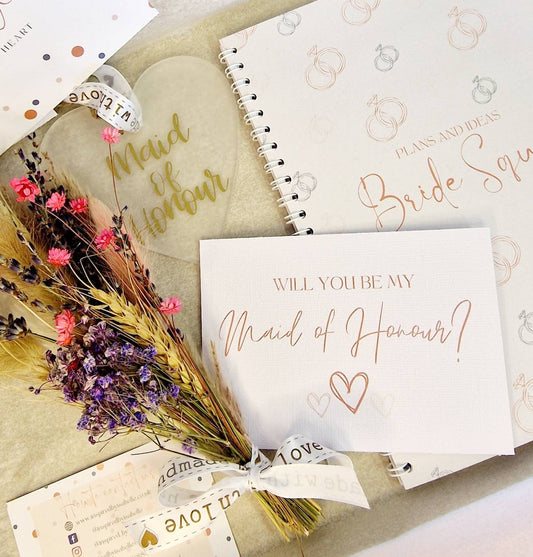 HEART
with love
Maid
of
Honour
PLANS AND IDEAS
Bride Squ
WILL YOU BE MY
Maid of Honour?
handmade
love
made with
with love